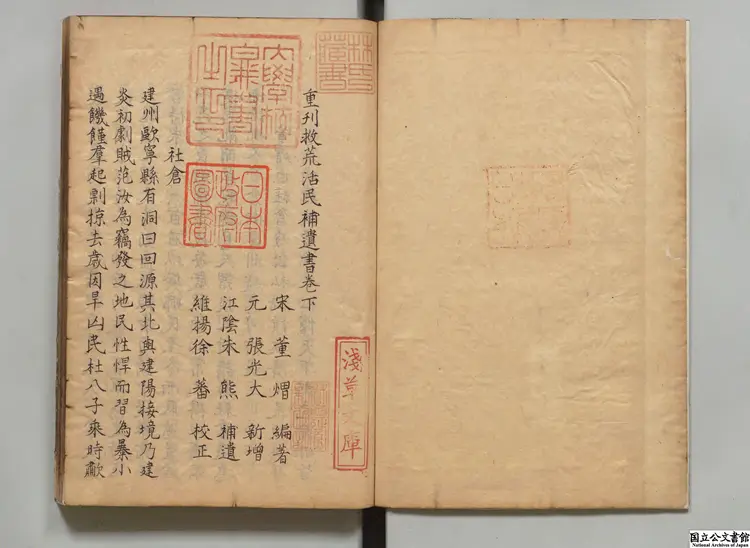 重刊救荒活民補遺書卷下
宋 董 煟 編著
元 張光大 新增
江陰朱 熊 補遺
維揚徐 蕃 校正
社倉
建州歐寧縣有洞曰回源其北與建陽接境乃建
炎初劇賊范汝為竊發之地民性悍而習為暴小
遇饑饉群起剽掠去歲因旱凶民杜八子乘時歗
林氏藏書
日本政府圖書
淺草文庫
国立公文書館
National Archives of Japan